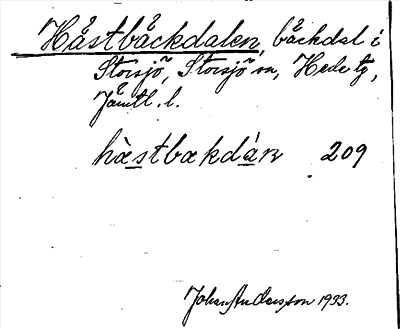 Håstbåckdalen, båckdal i
Storsjö, Storsjö sn, Hede tg,
Jåmtl. l.
hæstbækdán 209
Johan Andersson 1933.